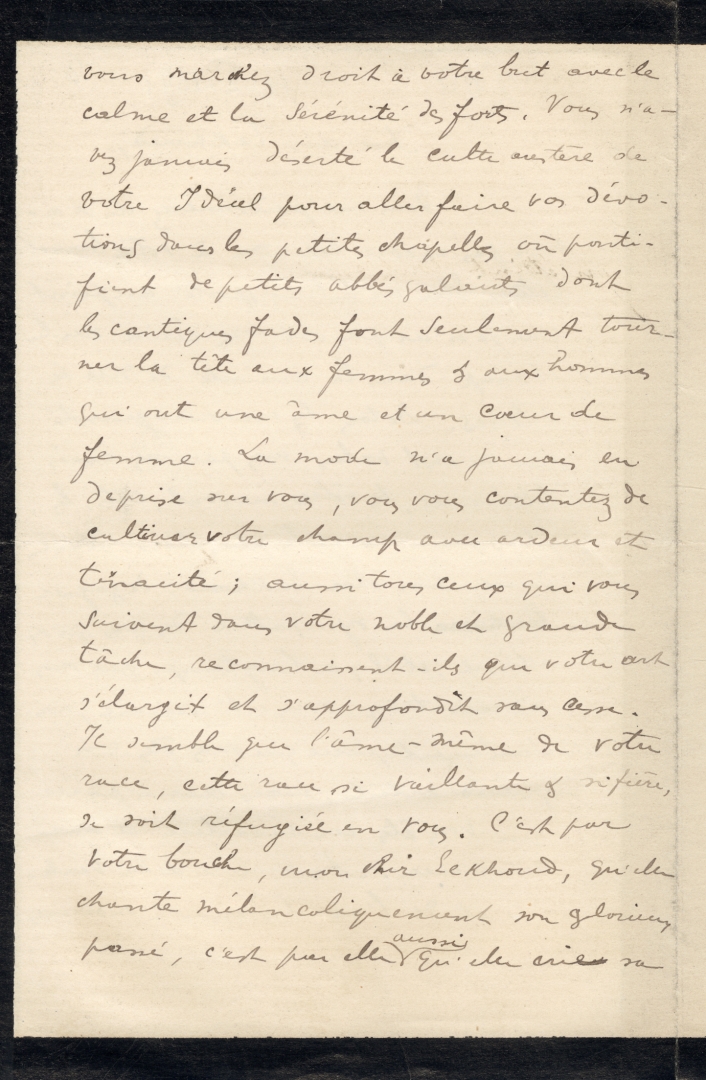 vous marchez droit à votre but avec le
calme et la sérénité des forts. Vous n'a-
vez jamais déserté le culte austère de
votre Idéal pour aller faire vos dévo-
tions dans les petites chapelles où ponti-
fient de petits abbés galants dont
les cantiques fades font seulement tour-
ner la tête aux femmes & aux hommes
qui ont une âme et un cœur de
femme. La mode n'a jamais eu
de prise sur vous, vous vous contentez de
cultiver votre champ avec ardeur et
ténacité ; aussi tous ceux qui vous
suivent dans votre noble et grande
tâche, reconnaissent-ils que votre art
s'élargit et s'approfondit sans cesse.
Il semble que l'âme-même de votre
race, cette race si vaillante & si fière,
se soit réfugiée en vous. C'est par
votre bouche, mon cher Eekhoud, qu'elle
chante mélancoliquement son glorieux
passé, c'est par elle aussi qu'elle crie sa